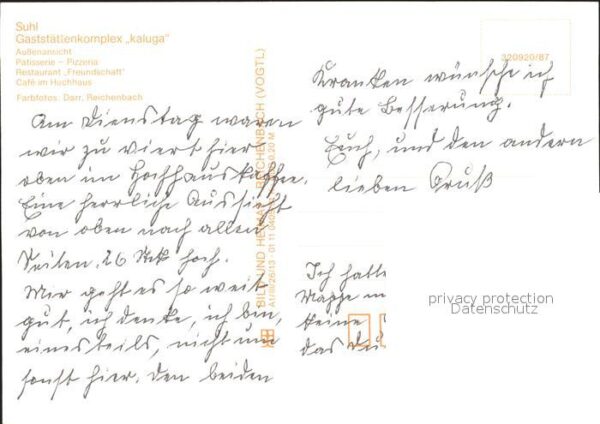 Suhl
Gaststättenkomplex „kaluga"
Außenansicht
Patisserie – Pizzeria
Restaurant „Freundschaft"
Café im Huchhaus
Farbfotos: Darr, Reichenbach
Am Dienstag waren
wir zu viert hier
oben im Hochhauskaffee.
Eine herrliche Aussicht
von oben nach allen
Seiten. 26 Stck hoch.
Mir geht es so weit
gut, ich denke, ich bin,
einesteils, nicht um
sonst hier. Den beiden
BILD UND HEIMAT REICHENBACH (VOGTL)
A1/III/26/13 01 11 0,20 M
320920/87
Kranken wünsche ich
gute Besserung.
Euch, und den andern
lieben Gruß
Ich hatte
Mappe
keine
das
privacy protection
Datenschutz